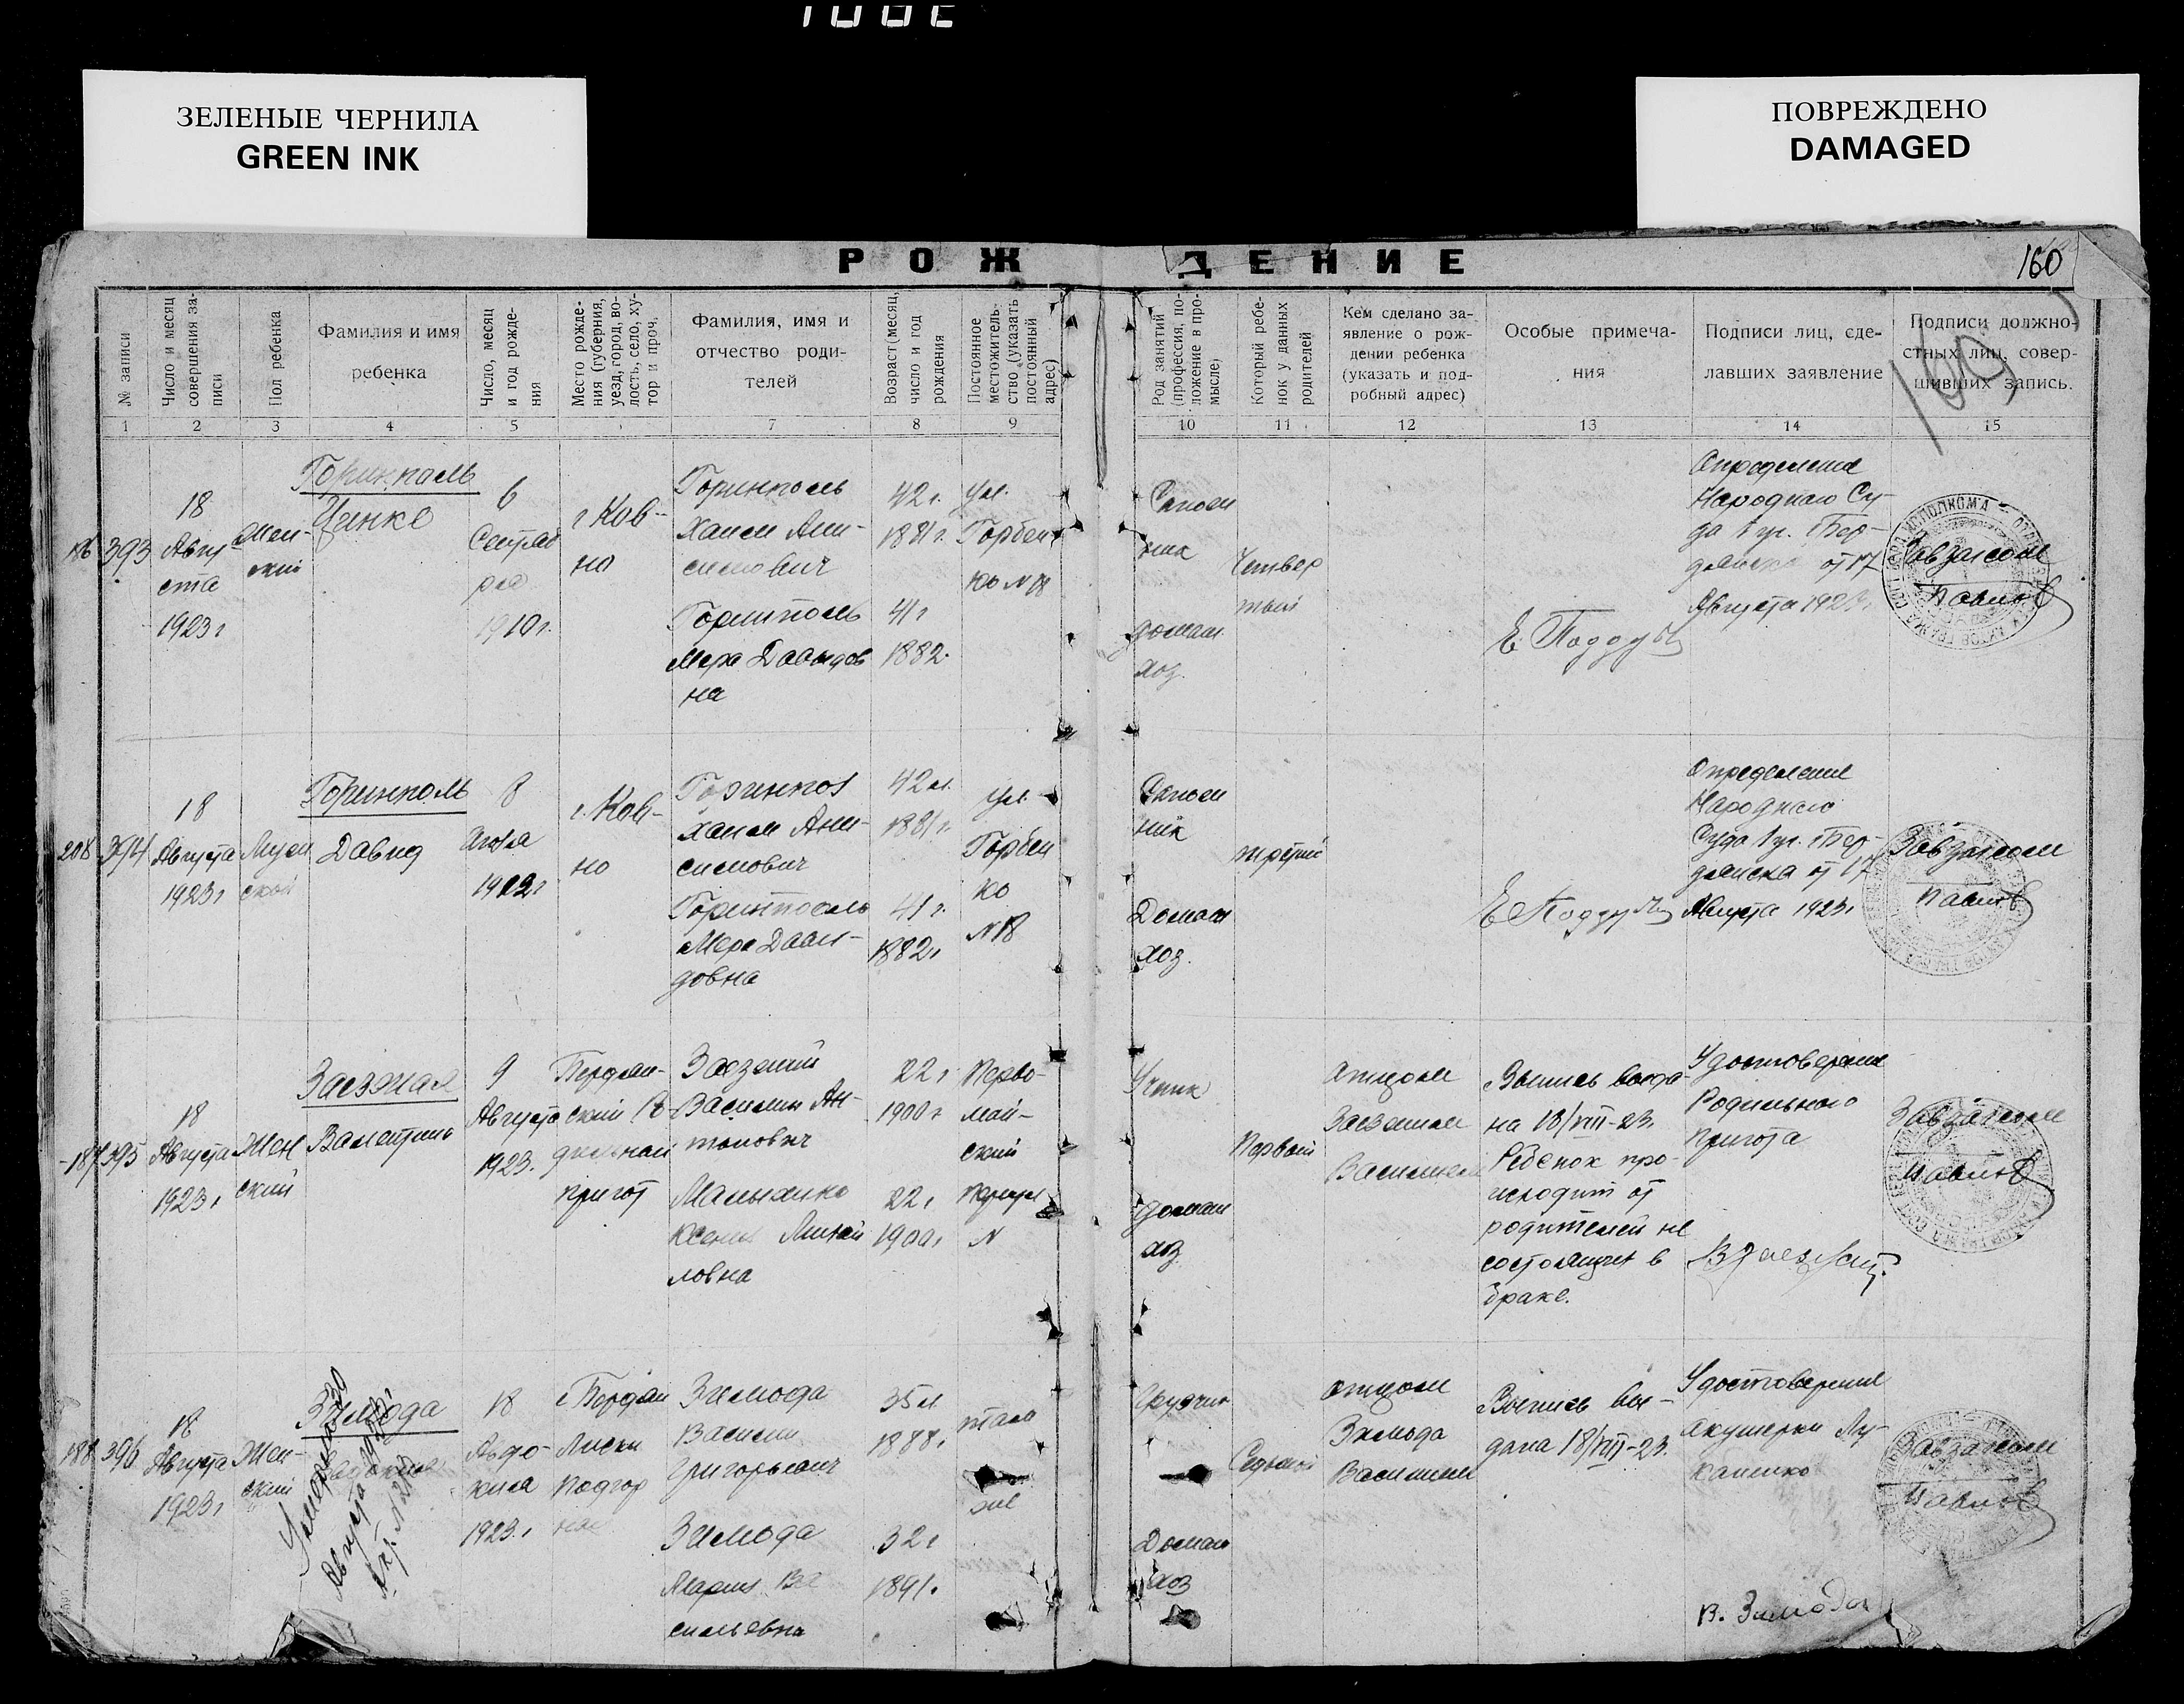 ЗЕЛЕНЫЕ ЧЕРНИЛА
GREEN INK
ПОВРЕЖДЕНО
DAMAGED
РОЖДЕНИЕ
160
169
№ записи
Число и месяц
совершения за-
писи
Пол ребенка
Фамилия и имя
ребенка
Число, месяц
и год рожде-
ния
Место рожде-
ния (губерния,
уезд, город, во-
лость, село, ху-
тор и проч.
Фамилия, имя и
отчество роди-
телей
Возраст (месяц,
число и год
рождения
Постоянное
местожитель-
ство (указать
постоянный
адрес)
Род занятий
(профессия, по-
ложение в про-
мысле)
Который ребе-
нок у данных
родителей
Кем сделано за-
явление о рож-
дении ребенка
(указать и под-
робный адрес)
Особые примеча-
ния
Подписи лиц, сде-
лавших заявление
Подписи должно-
стных лиц, совер-
шивших запись.
1 2 3 4 5 7 8 9 10 11 12 13 14 15
186
393
18
Авгу-
ста
1923 г
Жен-
ский
Горинполь
Ценке
6
Сентяб
ря
1910 г.
г Ков-
но
Горинполь
Хаим Ани-
симович
Горинполь
Мера Давидов
на
42 г.
1881 г.
41 г
1882.
ул.
Горбен
ко N 18
Сапож
ник
домаш.
хоз.
Четвер
тый
Е. Поддуб
Определение
Народнаго Су-
да 1 уч. Бер-
дянска от 17
Августа 1923 г
Завзагсом
Павлов
208
394
18
Августа
1923 г
Муж
ской
Горинполь
Давид
8
г. Ков-
но
Хаим Ани-
симович
Горинполь
Мера Дави-
довна
42 л.
1881 г.
41 г.
1882 г.
Ул.
Горбен
ко
N 18
Сапож
ник
Домаш
хоз.
третий
Определение
Народнаго
Суда 1 уч. Бер-
дянска от 17
Августа 1923 г
Завзагсом
Павлов
187
395
18
Августа
1923 г
Жен
ский
Заезжая
Валентина
9
Августа
1923.
Бердян-
ский Ро
дильный
приют
Заезжий
Василий Ан-
тонович
Ксения Михай
ловна
22 г
1900 г
22 г
1900 г
Перво-
май-
ский
N
домаш
хоз
Первый
отцом
Заезжим
Василием
Выпись выда-
на 18/VIII-23.
Ребенок про-
исходит от
родителей не
состоящих в
браке.
Удостоверение
Родильного
приюта
Завзагсом
Павлов
188
396
18
Августа
1923 г
Жен-
ский
Зимода
Умерла 30
Августа 1923 г
18
1923 г
г Бердян
Зимода
Василий
Григорьевич
Зимода
Мария Ва
сильевна
35 л
1888 г
32 г
1891.
там
же
Грузчик
Домаш
хоз
Седьмой
отцом
Зимода
Василием
Выпись вы-
дана 18/VIII-23.
Удостоверение
акушерки Лу-
Завзагсом
Павлов
В. Зимода